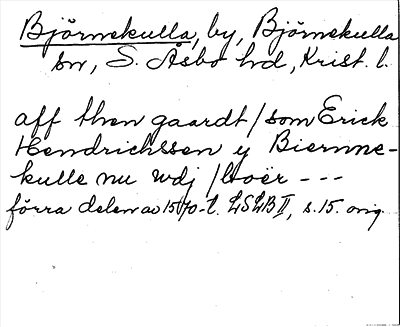 Björnekulla, by, Björnekulla
sn, S. Åsbo hd, Krist. l.
aff then gaardt / som Erick
Hendrichssen y Biernne-
kulle nu udj / boër - - -
förra delen av 1570-t. LSLB II, s. 15. orig.